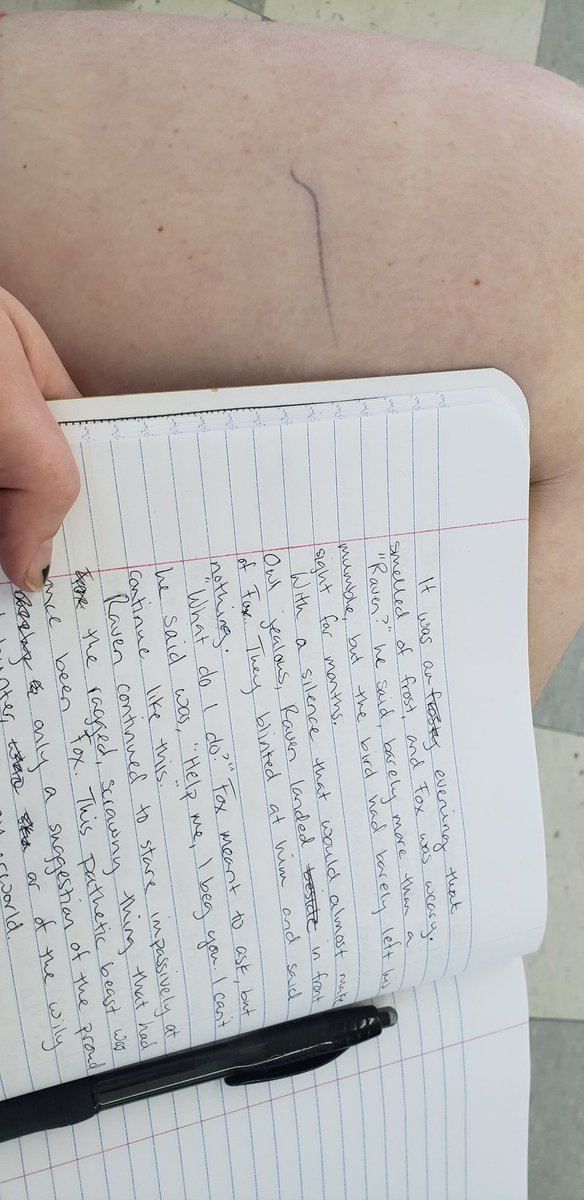 It was an frosty evening that
smelled of frost, and Fox was weary.
"Raven?" he said, barely more than a
mumble, but the bird had barely left his
sight for months.
With a silence that would almost make
Owl jealous, Raven landed beside in front
of Fox. They blinked at him and said
nothing.
"What do I do?" Fox meant to ask, but
he said was, "Help me, I beg you. I can't
continue like this."
Raven continued to stare impassively at
the ragged, scrawny thing that had
once been Fox. This pathetic beast was
only a suggestion of the proud
or of the wily